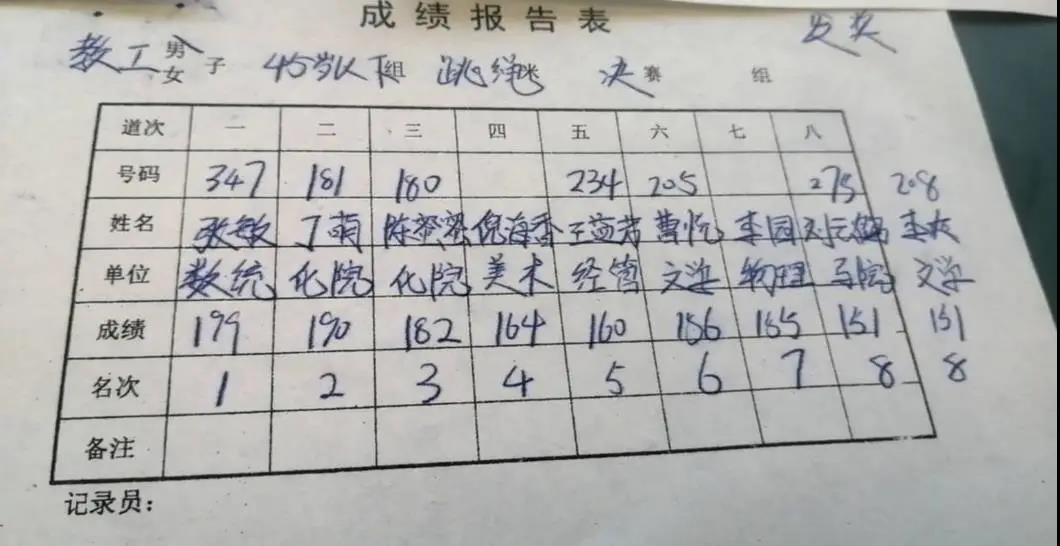 成绩报告表
发奖
教工 男女子 45岁以下组 跳绳米 决赛 组
道次 一 二 三 四 五 六 七 八
号码 347 181 180 234 205 275 208
姓名 张敏 丁萌 陈燚燚 倪海香 王益芳 曹悦 李园 刘云 李
单位 数统 化院 化院 美术 经管 文学 物理 马院 文学
成绩 199 190 182 164 160 156 155 151 151
名次 1 2 3 4 5 6 7 8 8
备注
记录员：